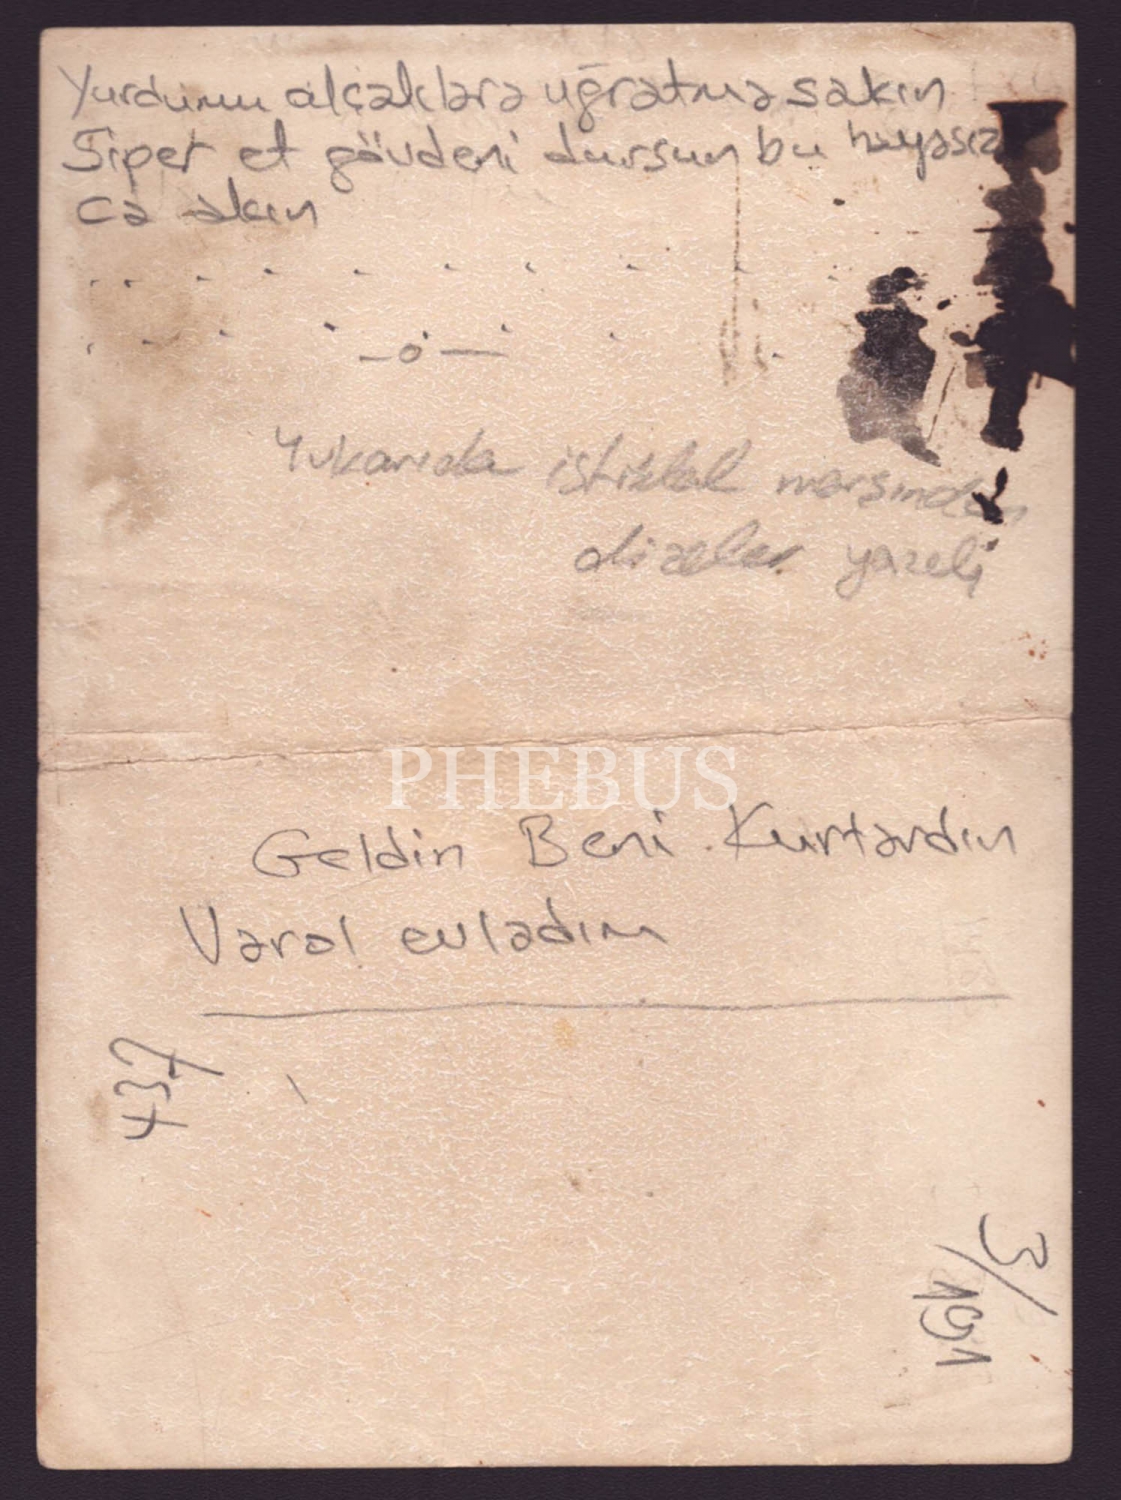 Yurdumu alçaklara uğratma sakın
Siper et gövdeni dursun bu hayasız
ca akın
. . . . . . . . .
. . . . . . . .
—o—
Yukarıda istiklal marşından
dizeler yazılı
PHEBUS
Geldin Beni Kurtardın
Varol evladım
3/1951